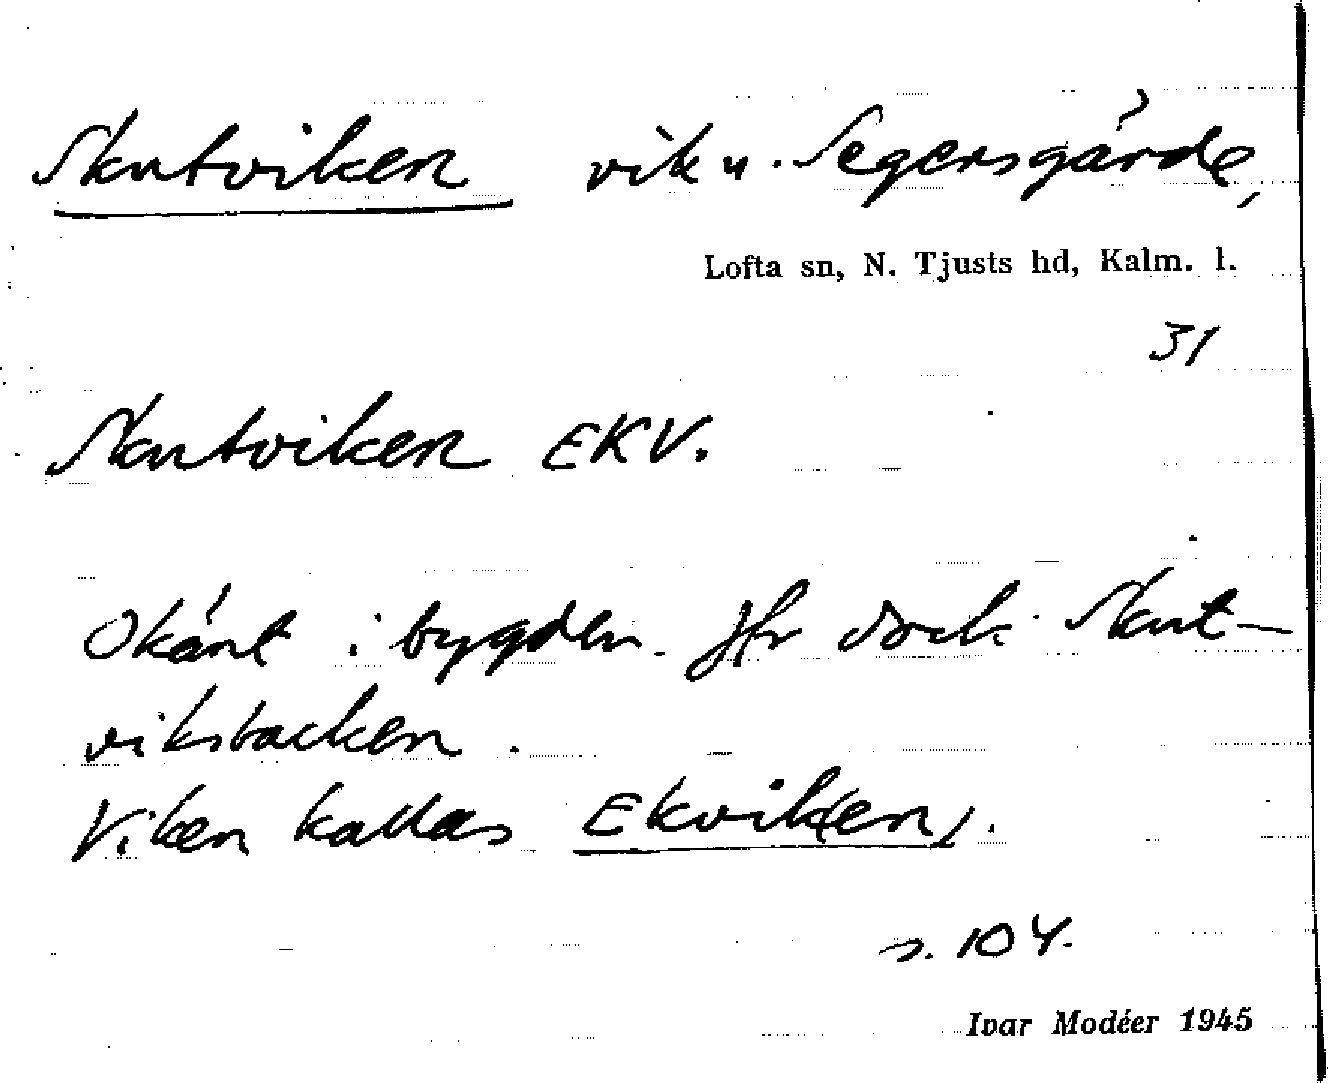 Skutviken vik u. Segersgärde,
Lofta sn, N. Tjusts hd, Kalm. l.
31
Skutviken EKV.
Okänt i bygden. Jfr dock Skut-
viksbacken.
Viken kallas Ekvik(en).
s. 104.
Ivar Modéer 1945